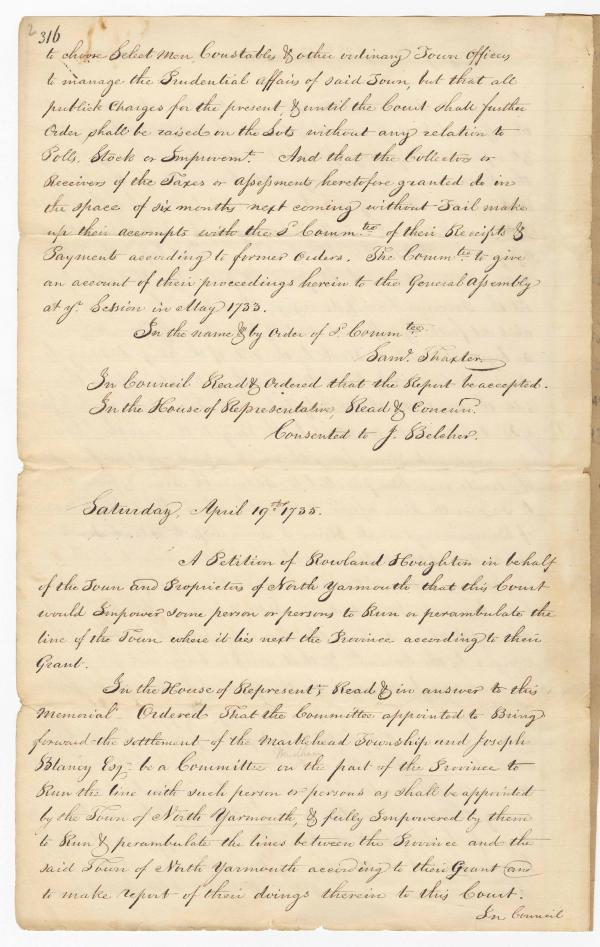 2 316
to choose Select Men, Constables & other ordinary Town Officers
to manage the Prudential affairs of said Town, but that all
publick Charges for the present, & until the Court shall further
Order shall be raised on the Lots without any relation to
Polls, Stock or Improvemt. And that the Collectors or
Receivers of the Taxes or assessments heretofore granted do in
the space of six months next coming without Fail make
up their accompts with the sd. Commtee of their Receipts &
Payments according to former orders. The Commtee to give
an account of their proceedings herein to the General Assembly
at yr. Session in May 1733.
In the name & by order of sd. Commtee.
Saml. Thaxter
In Council Read & Ordered that the Report be accepted.
In the House of Representatives, Read & Concurd.
Consented to J. Belcher.
Saturday, April 19th 1735.
A Petition of Rowland Houghton in behalf
of the Town and Proprietors of North Yarmouth that this Court
would Impower some person or persons to Run or perambulate the
line of the Town where it lies next the Province according to their
Grant.
In the House of Represents. Read & in answer to this
Memorial Ordered That the Committee appointed to Bring
forward the settlement of the Marblehead Township and Joseph
Blaney Esqr. be a Committee on the part of the Province to
Run the line with such person or persons as shall be appointed
by the Town of North Yarmouth, & fully Impowered by them
to Run & perambulate the lines between the Province and the
said Town of North Yarmouth according to their Grant and
to make report of their doings therein to this Court.
In Council